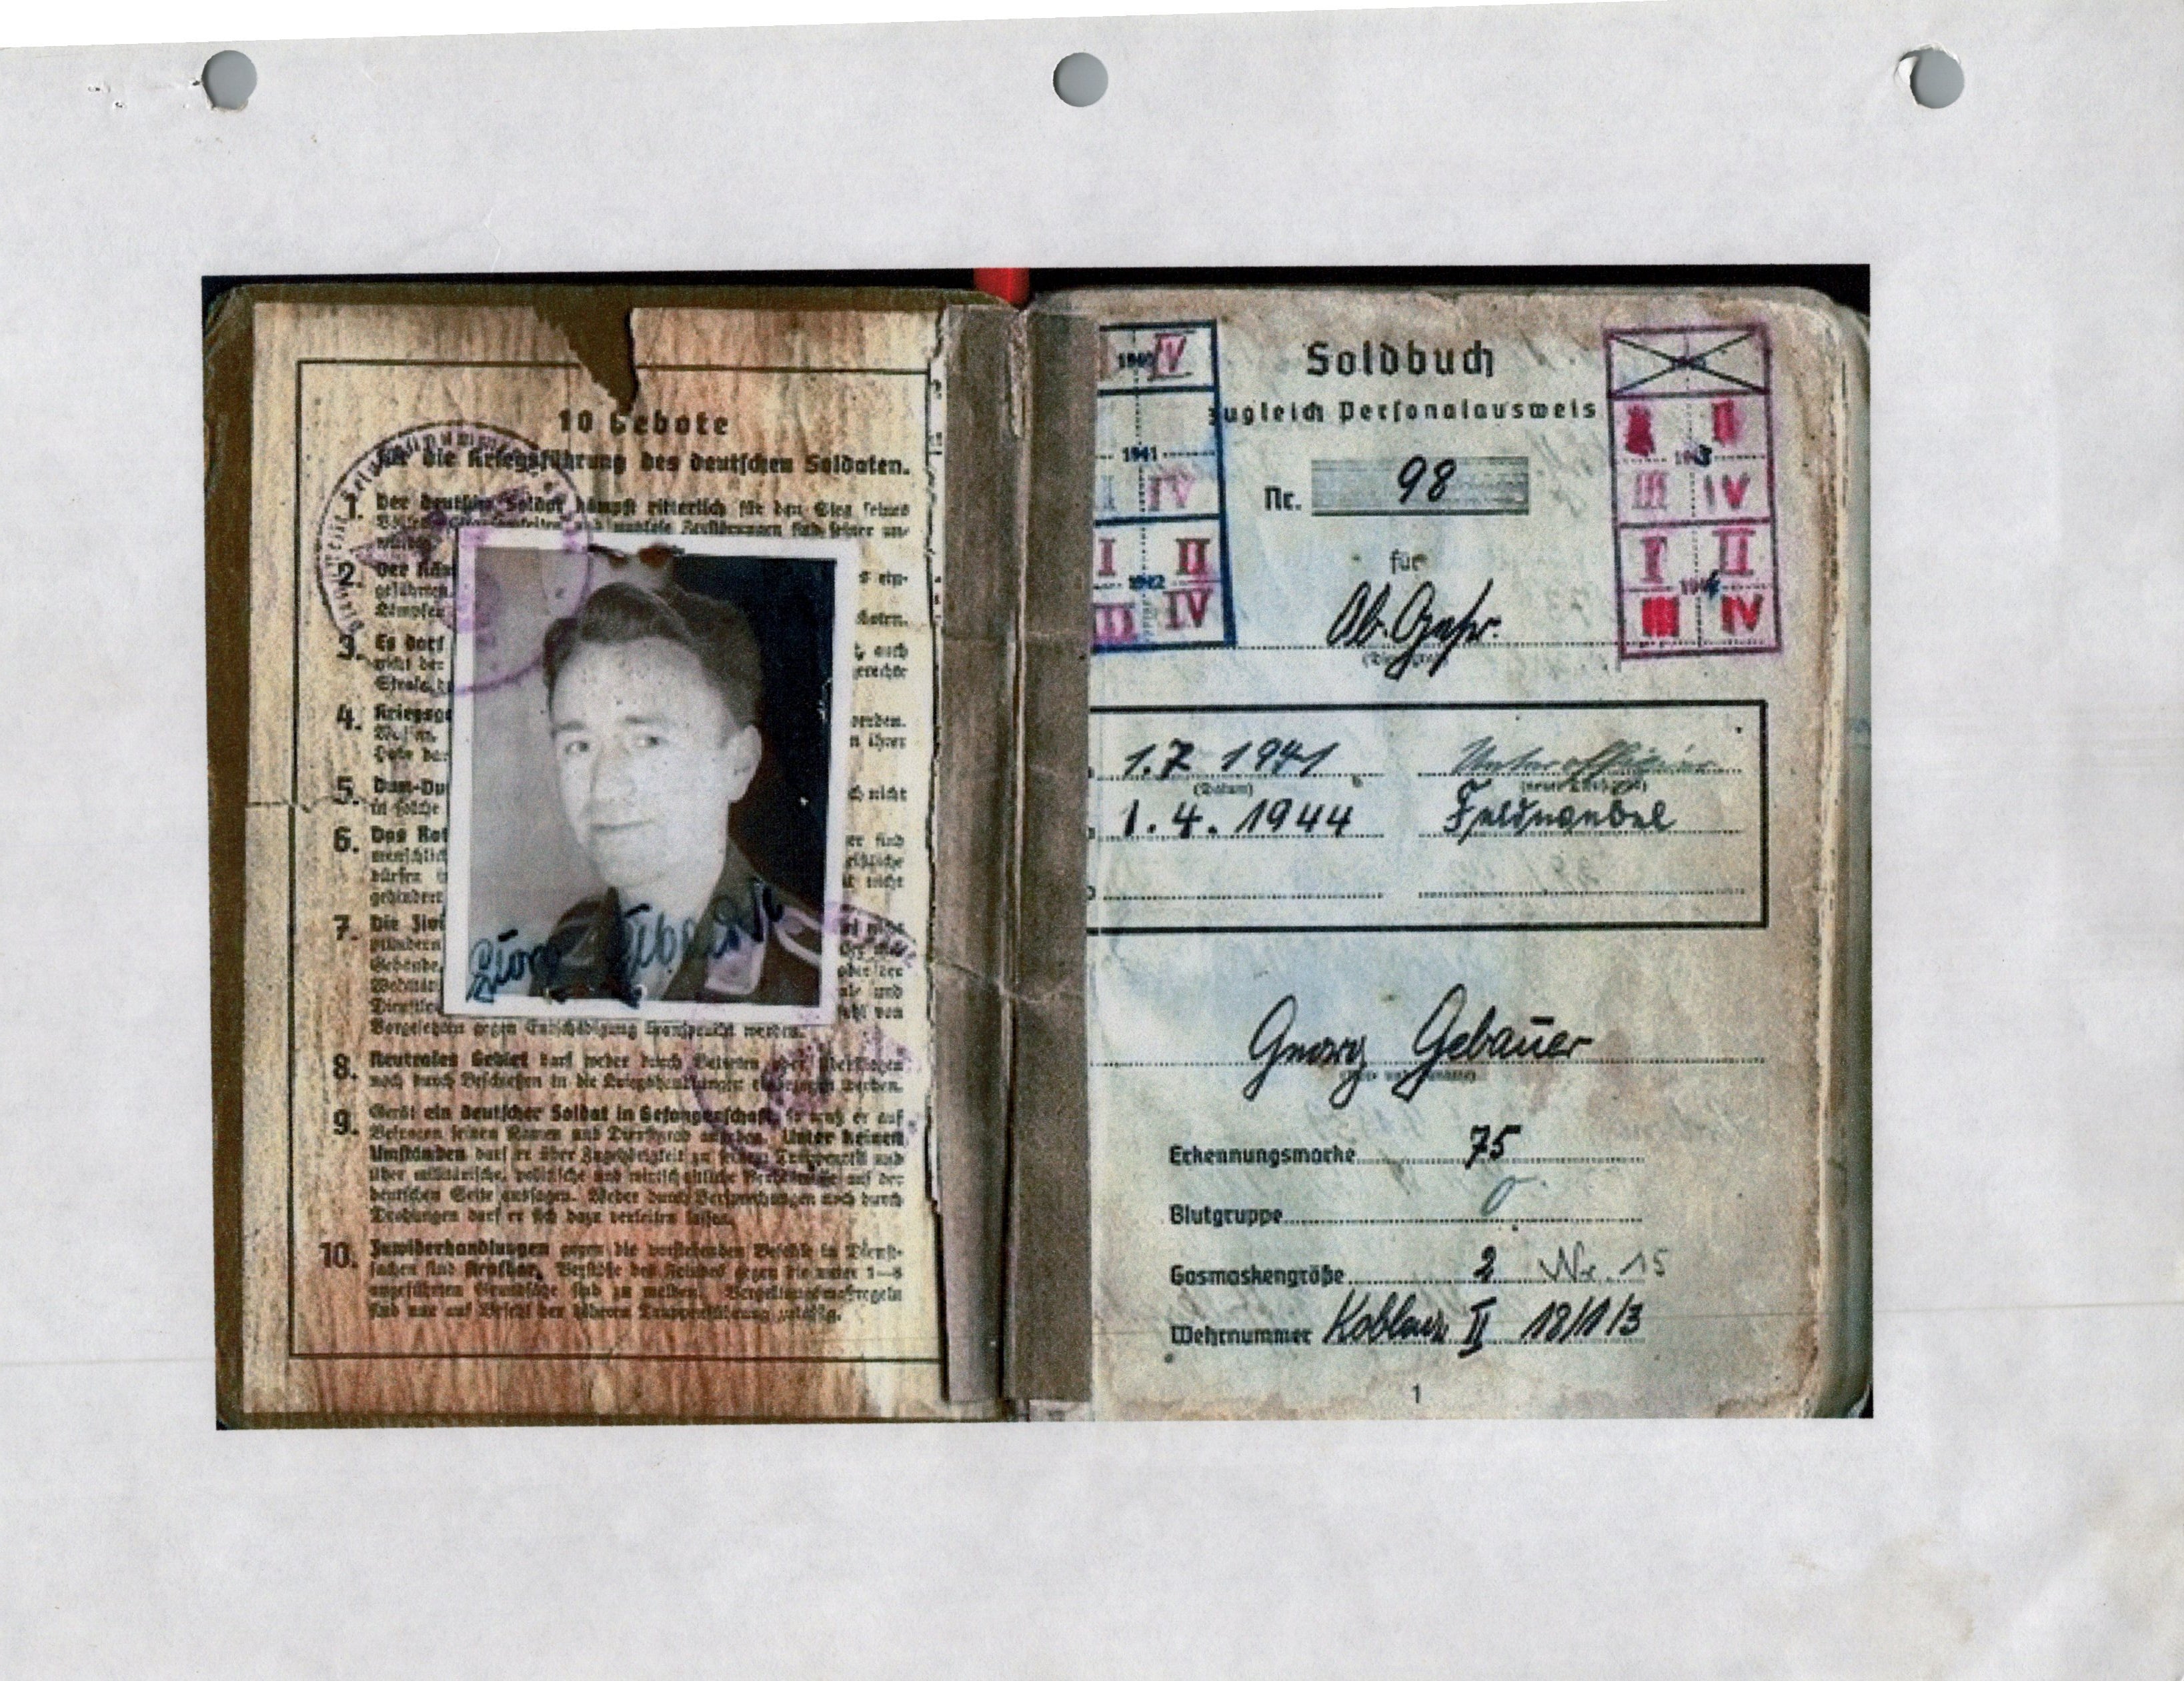 10 Gebote
für die Kriegsführung des deutschen Soldaten.
1. Der deutsche Soldat kämpft ritterlich für den Sieg seines
sind seiner un-
2. Der Käm
s ein-
geführten
Kämpfen
3. Es darf
t, auch
nicht der
gerechte
Strafe
4. Kriegsge
werden.
Waffen
n ihrer
5. Dum-Du
nicht
in solche
6. Das Rot
er sind
menschlich
dürfen
nicht
gehindert
7. Die Zivi
nicht
plündern
Gebäude,
oder der
Dienstle
Vorgesetzten gegen Entschädigung beansprucht werden.
8. Neutrales Gebiet darf weder durch Betreten oder Überfliegen
noch durch Beschießen in die Kriegshandlungen einbezogen werden.
9. Gerät ein deutscher Soldat in Gefangenschaft, so muß er auf
Befragen seinen Namen und Dienstgrad angeben. Unter keinen
Umständen darf er über Zugehörigkeit zu seinem Truppenteil und
über militärische, politische und wirtschaftliche Verhältnisse auf der
deutschen Seite aussagen. Weder durch Versprechungen noch durch
Drohungen darf er sich dazu verleiten lassen.
10. Zuwiderhandlungen gegen die vorstehenden Befehle in Dienst-
sachen sind strafbar. Verstöße des Feindes gegen die unter 1—8
angeführten Grundsätze sind zu melden. Vergeltungsmaßregeln
sind nur auf Befehl der höheren Truppenführung zulässig.
Georg Gebauer
1940 IV
1941
IV
I II
1942
III IV
Soldbuch
zugleich Personalausweis
Nr. 98
für
Ob. Gefr.
I II
1943
III IV
I II
1944
III IV
1.7 1941 Unteroffizier
(Datum)
1.4.1944 Feldwebel
Georg Gebauer
Erkennungsmarke 75
Blutgruppe 0
Gasmaskengröße 2 Nr. 15
Wehrnummer Koblenz II 18/1/3
1